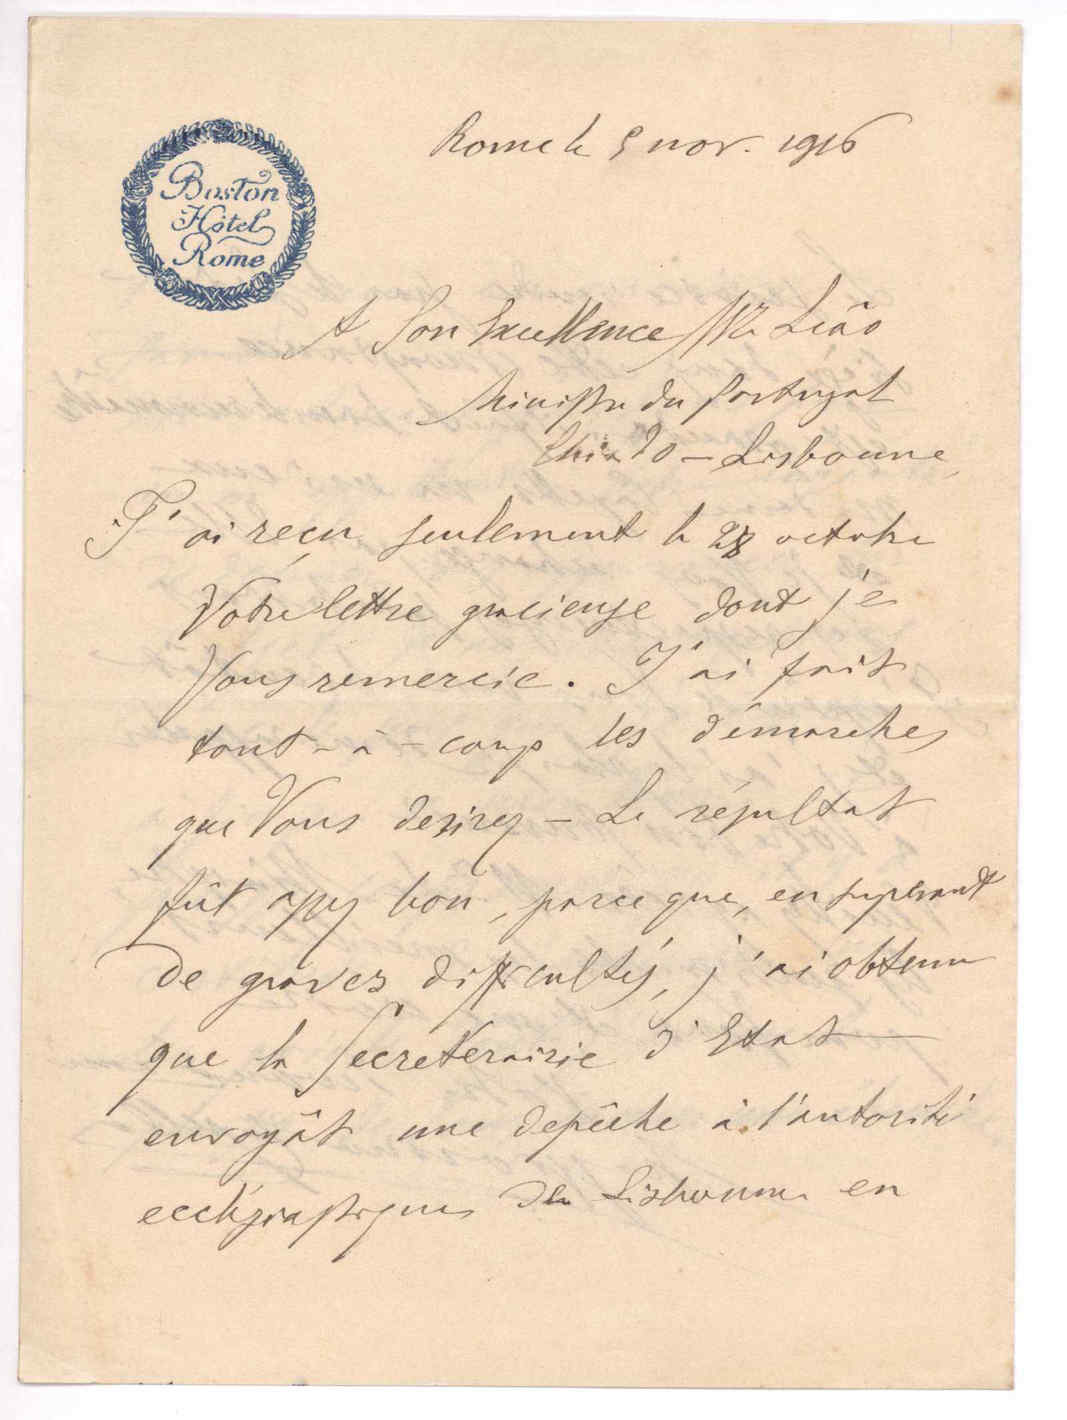 Boston
Hôtel
Rome
Rome le 5 nov. 1916
A Son Excellence Mr Leão
Ministre du Portugal
Chiado - Lisbonne
J'ai reçu seulement le 28 octobre
Votre lettre gracieuse dont je
Vous remercie. J'ai fait
tout-à-coup les démarches
que Vous desirez - Le résultat
fût assez bon, parce que, en superant
de graves difficultés, j'ai obtenu
que la Secreterairie d'Etat
envoyât une depêche à l'autorité
ecclésiastique de Lisbonne en